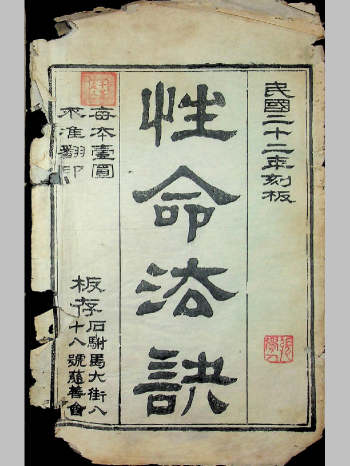 民國二十二年刻板
性命法訣
每本壹圓
不准翻印
板存石駙馬大街八
十八號慈善會